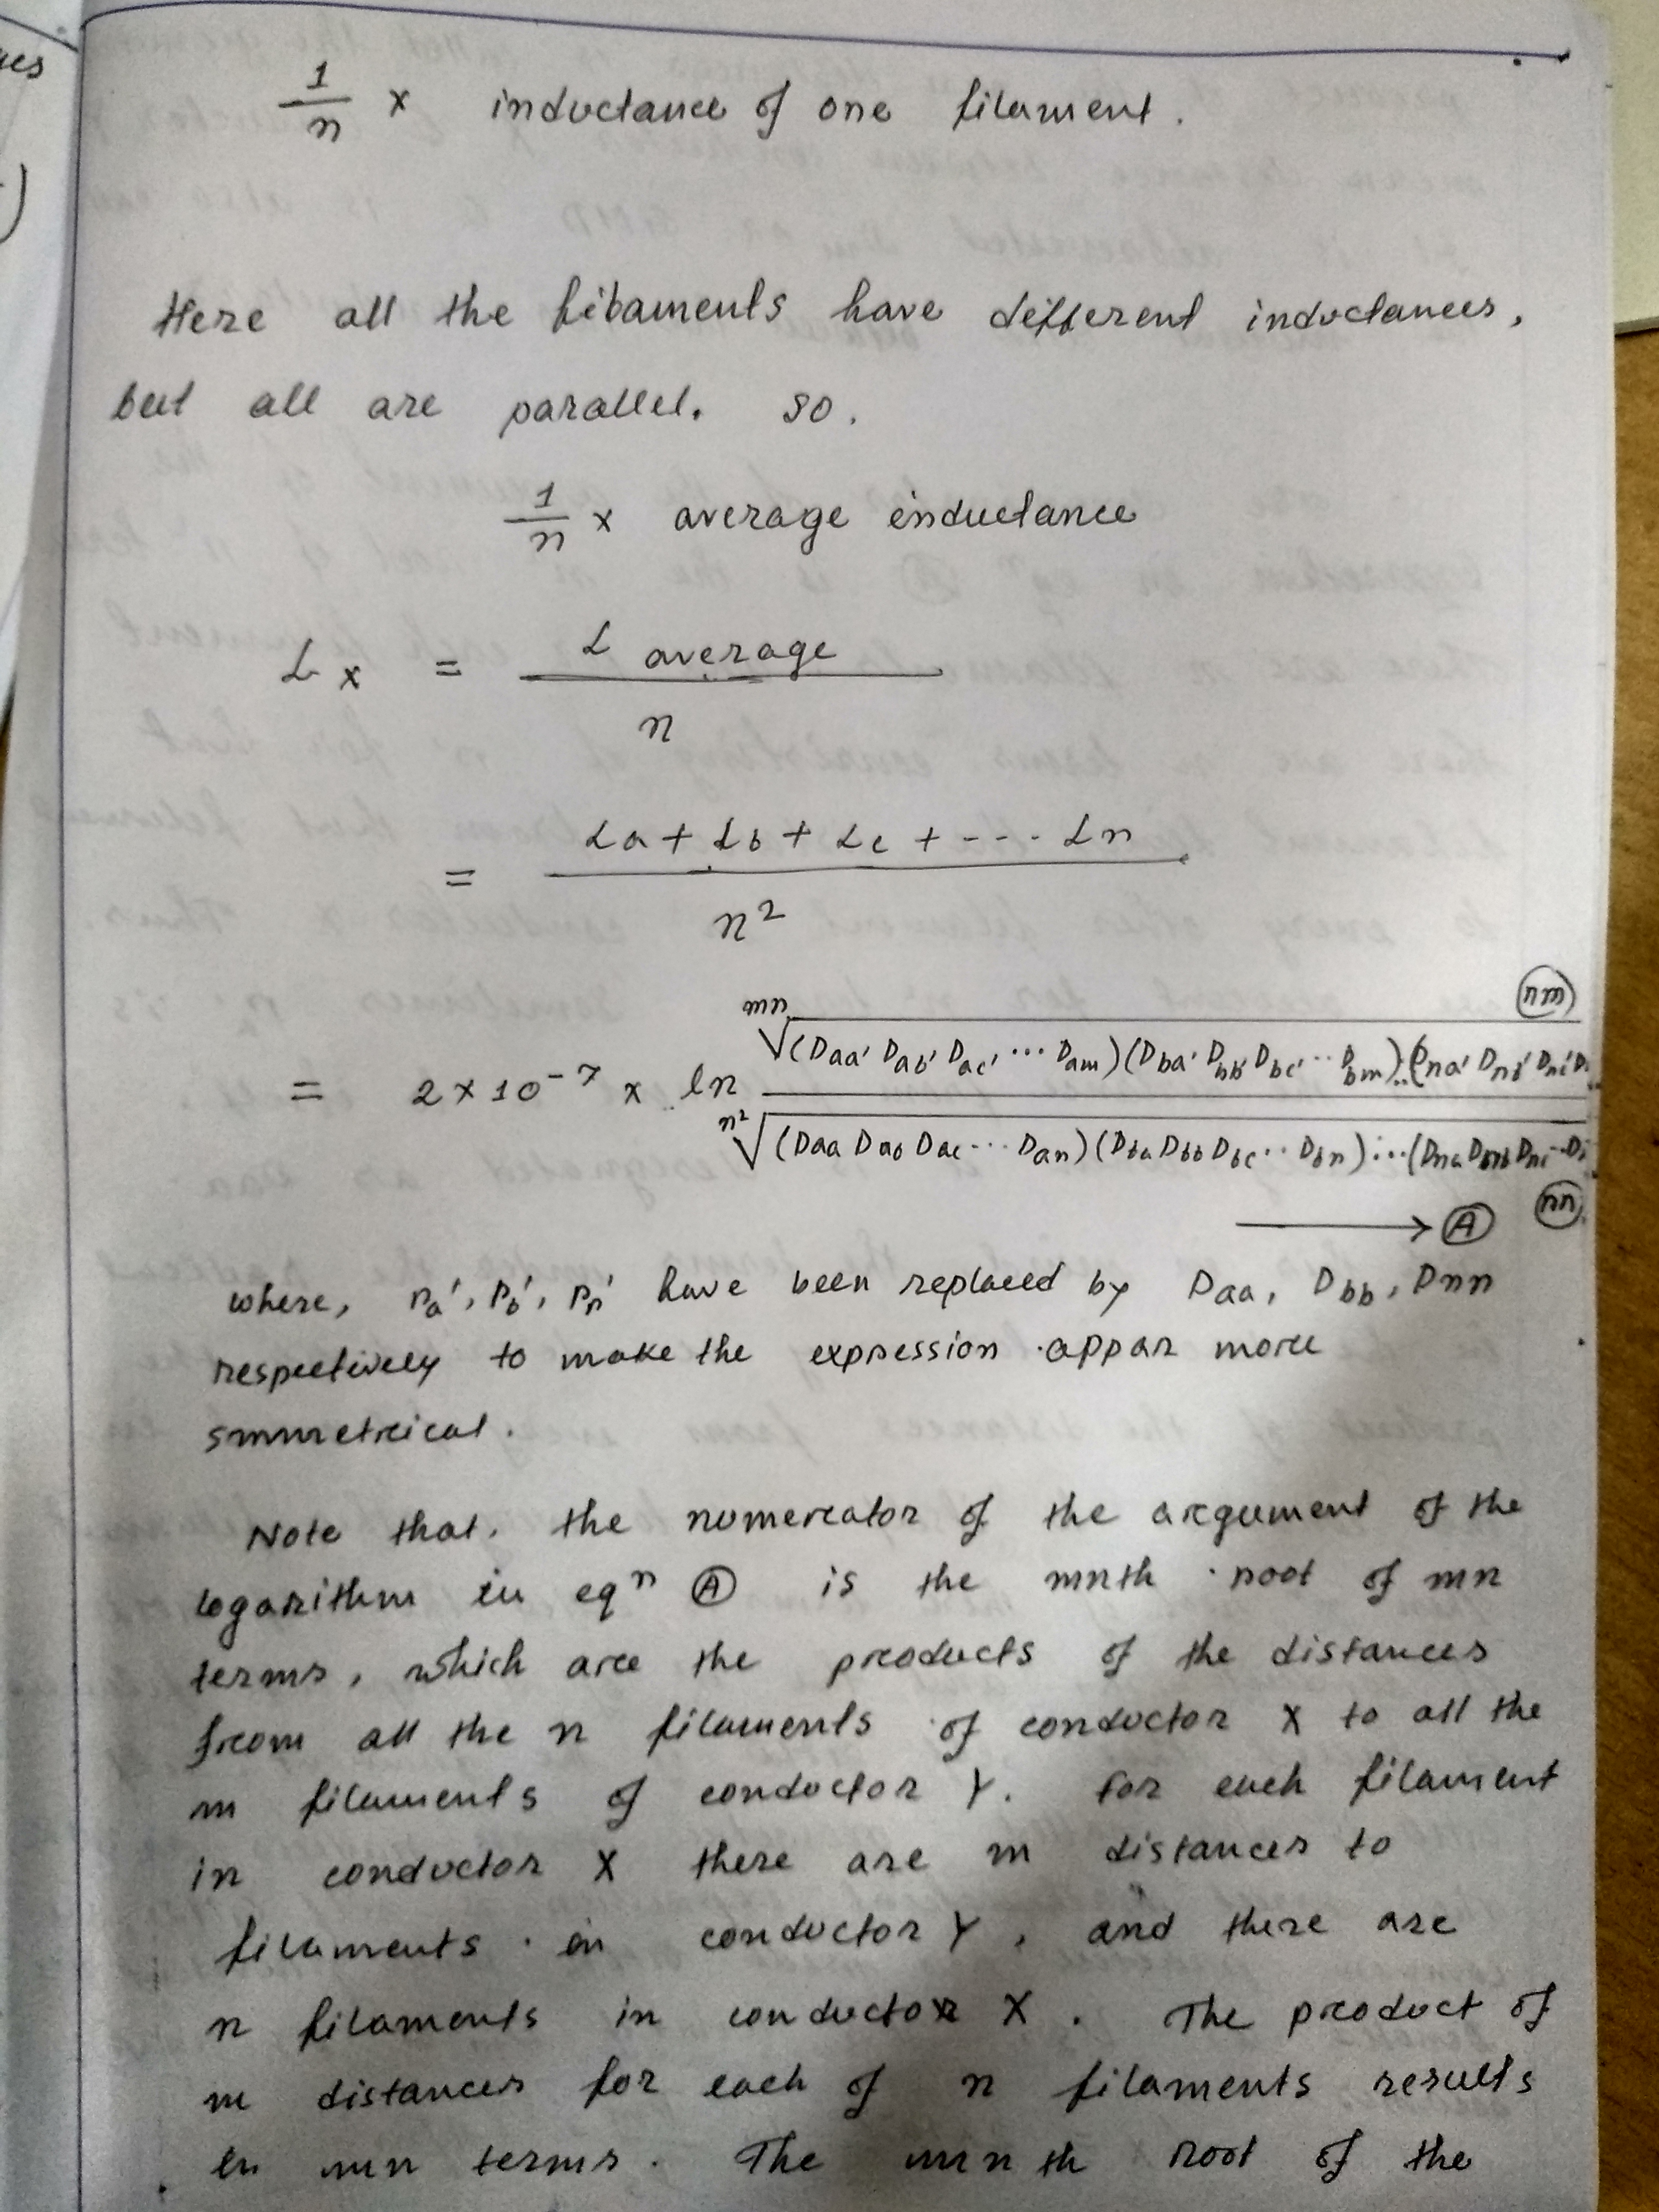 ues
)
1/n × inductance of one filament.
Here all the filaments have different inductances,
but all are parallel. so.
1/n × average inductance
Lx = L average / n
= La + Lb + Lc + --- Ln / n²
= 2×10⁻⁷ × ln mn√(Daa' Dab' Dac' ... Dam)(Dba' Dbb' Dbc' .. Dbm)..(Dna' Dnb' Dnc' D
nm
n²√(Daa Dab Dac ... Dan)(Dba Dbb Dbc .. Dbn)...(Dna Dnb Dnc ..D
→ A nn
where, ra', rb', rn' have been replaced by Daa, Dbb, Dnn
respectively to make the expression appar more
smmetrical.
Note that, the numerator of the argument of the
logarithm in eqn A is the mnth root of mn
terms, which are the products of the distances
from all the n filaments of conductor X to all the
m filaments of conductor Y. For each filament
in conductor X there are m distances to
filaments in conductor Y, and there are
n filaments in conductor X. The product of
m distances for each of n filaments results
in mn terms. The mnth root of the